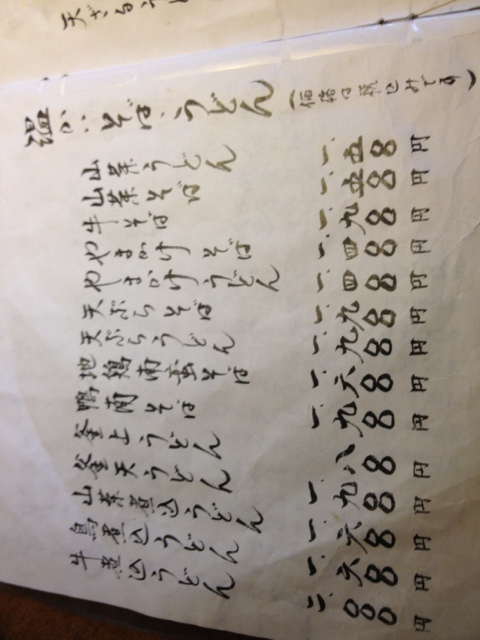 天ざるう
温かいそば・うどん（価格は税込みです）
山菜うどん 一、五〇〇円
山菜そば 一、五〇〇円
牛そば 一、九〇〇円
やまかけそば 一、四〇〇円
やまかけうどん 一、四〇〇円
天ぷらそば 一、九〇〇円
天ぷらうどん 一、九〇〇円
地鶏南蛮そば 一、六〇〇円
鴨南そば 一、九〇〇円
釜上うどん 八〇〇円
釜天うどん 一、九〇〇円
山菜煮込うどん 一、六〇〇円
鳥煮込うどん 一、六〇〇円
牛煮込うどん 二、〇〇〇円